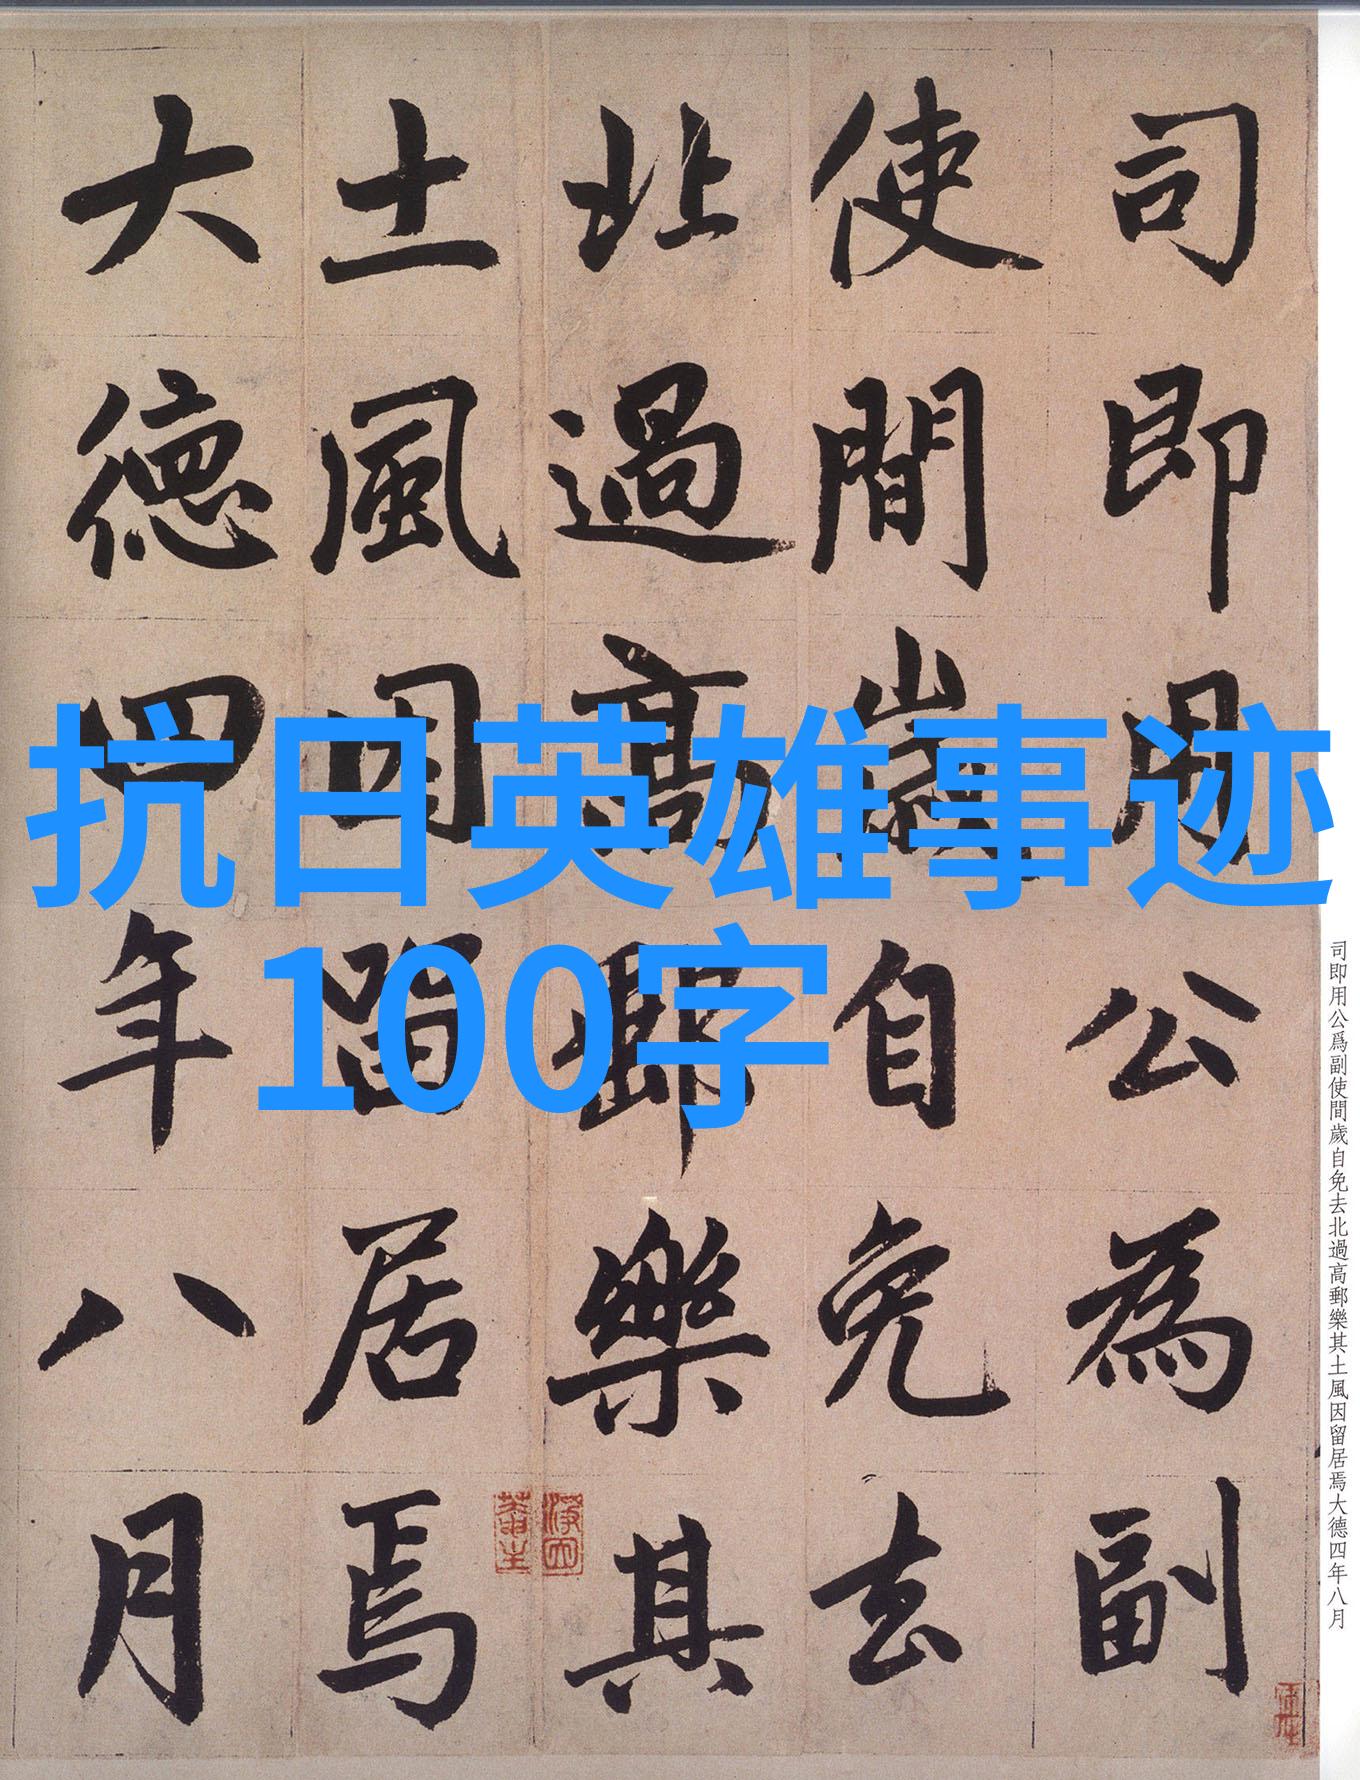 抗日英雄事迹
100字
司即用公為副
使間歲自免去
北過高郵樂其
土風因留居焉
大德四年八月
司即用公爲副使間歲自免去北過高郵樂其土風因留居焉大德四年八月